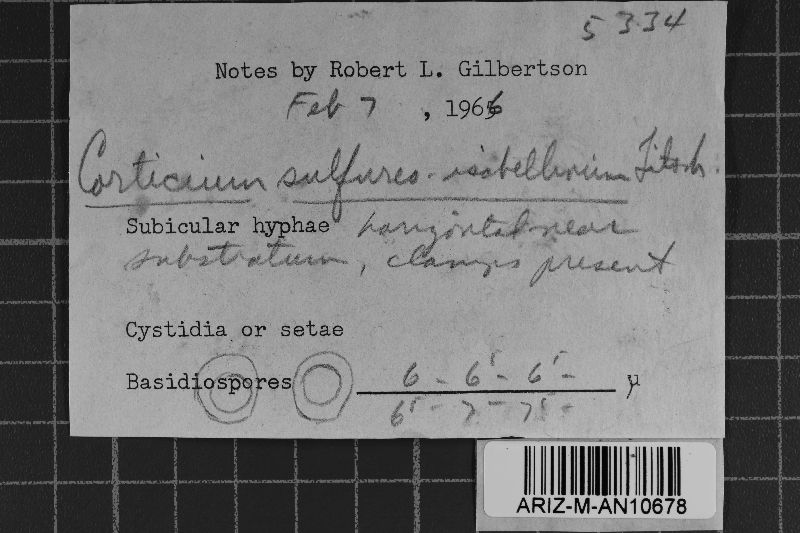 5334
Notes by Robert L. Gilbertson
Feb 7, 1966
Corticium sulfureo-isabellinum Litsch.
Subicular hyphae horizontal near
substratum, clamps present
Cystidia or setae
Basidiospores 6 - 6⁵ - 6⁵ - μ
6⁵ - 7 - 7⁵ -
ARIZ-M-AN10678